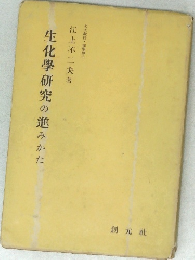 江上不二夫著
生化學研究の進みかた
創元社